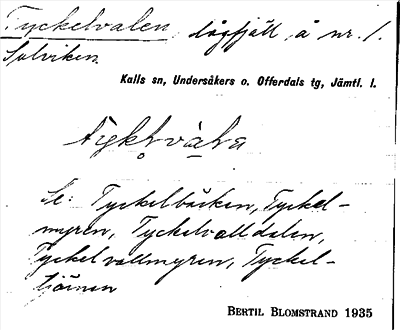 Tyckelvalen, lågfjäll å nr. 1.
Solviken
Kalls sn, Undersåkers o. Offerdals tg, Jämtl. l.
Se: Tyckelbäcken, Tyckel-
myren, Tyckelvalldalen,
Tyckelvallmyren, Tyckel-
tjärnen
BERTIL BLOMSTRAND 1935